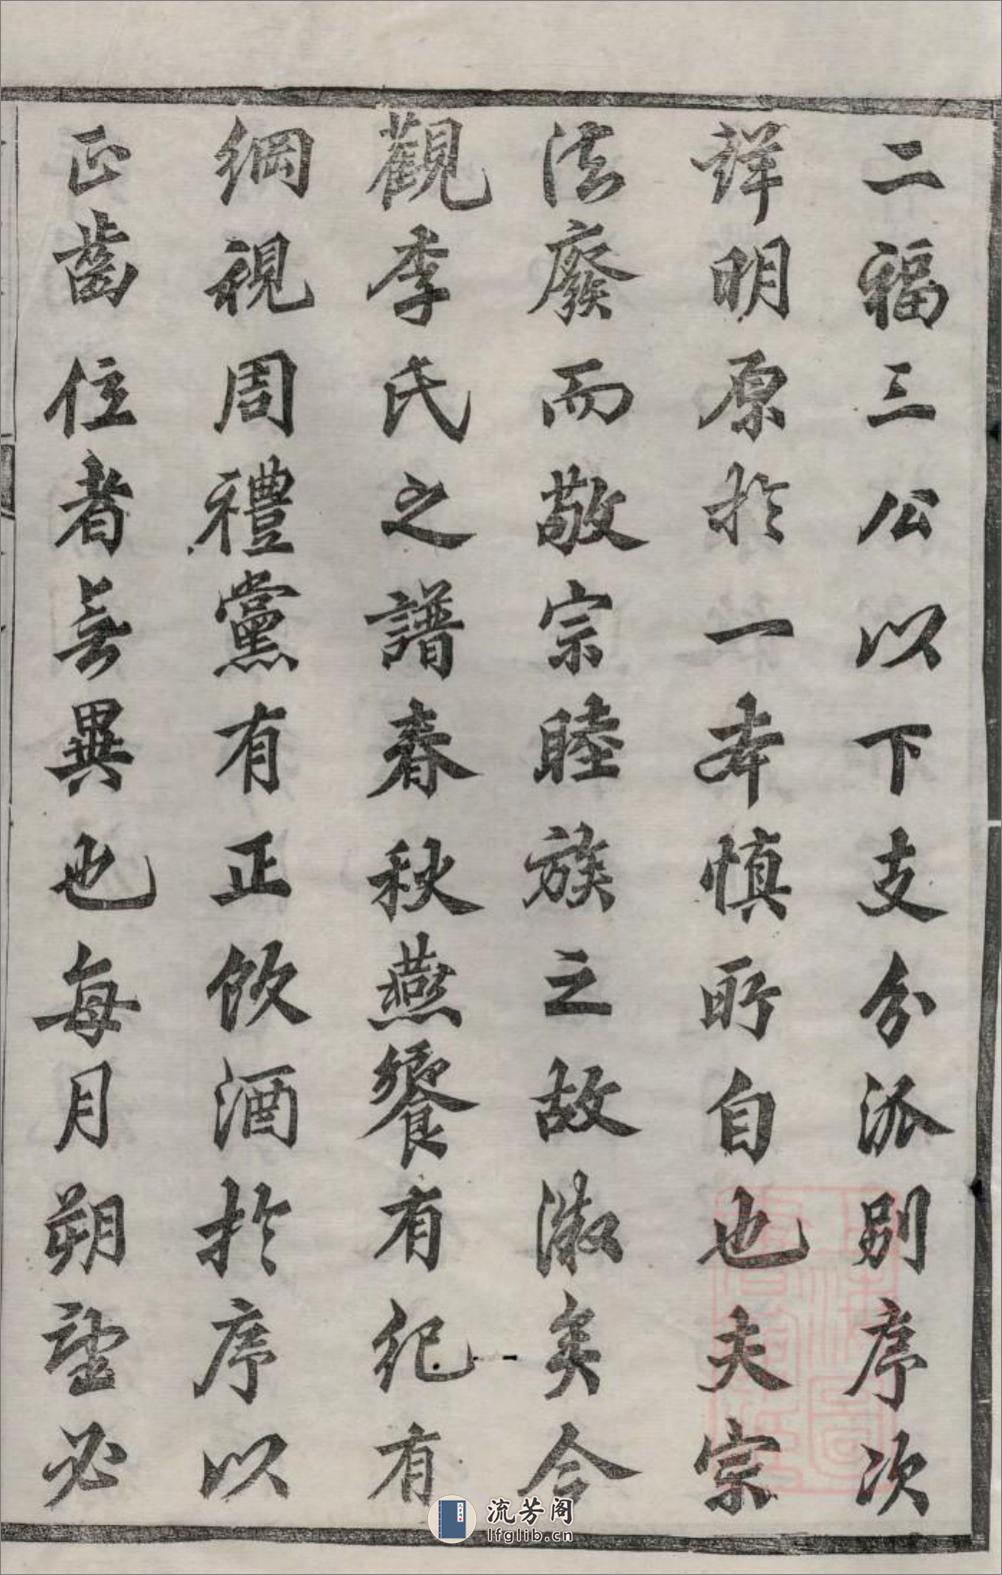 二福三公以下支分派别序次
詳明原於一本慎所自也夫宗
法廢而敬宗睦族之故漓矣今
觀李氏之譜春秋燕饗有紀有
綱視周禮黨有正飲酒於序以
正齒位者無異也每月朔望必
流芳阁
lfglib.cn